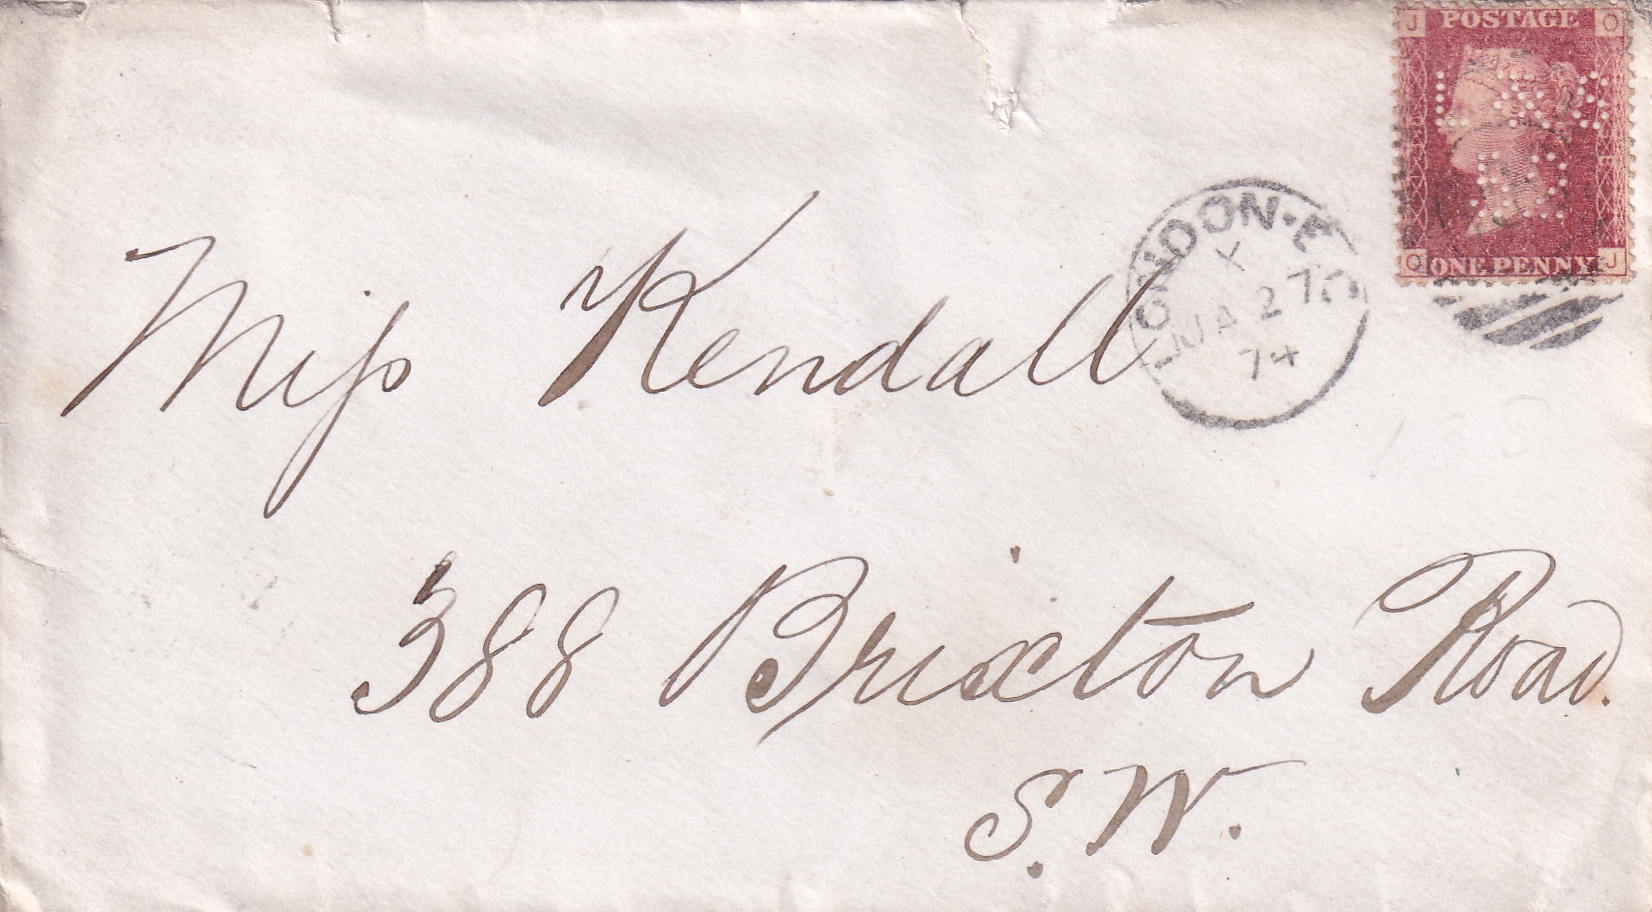 J POSTAGE O
O ONE PENNY J
LONDON·E C
X
JA 27
74
Miss Kendall
388 Brixton Road.
S.W.